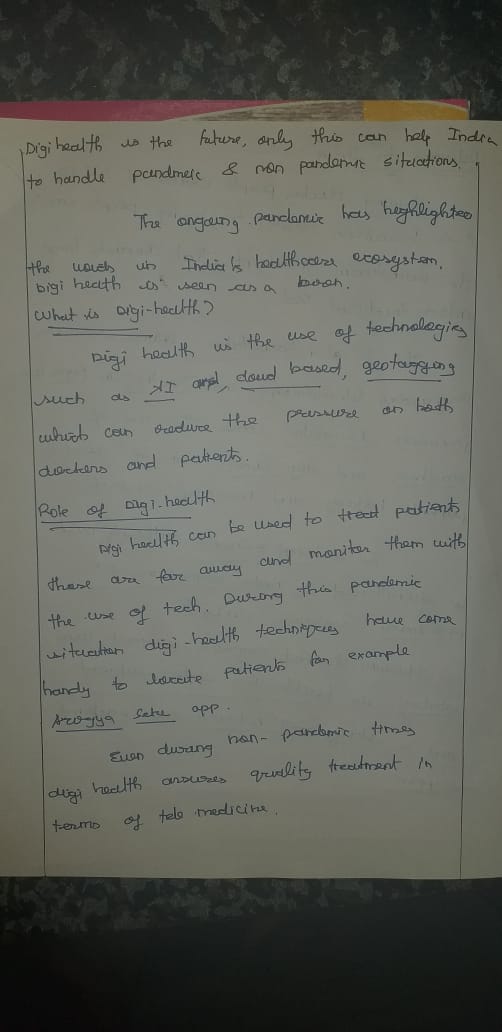 Digi health is the future, only this can help India
to handle pandmeic & non pandemic situations.
The ongoing pandemic has heghlighted
the in India's healthcare ecosystem.
Digi health is seen as a boon.
What is Digi-health?
Digi health is the use of technologies
such as AI and, cloud based, geotagging
which can reduce the pressure on both
docters and patients.
Role of Digi-health
Digi health can be used to treat patients
these are far away and moniter them with
the use of tech. During this pandemic
situation digi-health techniques have come
handy to locate patients for example
Arogya Setu app.
Even during non-pandemic times
digi health assures quality treatment in
terms of tele medicine.